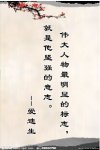 伟大人物最明显的标志，
就是他坚强的意志。
——爱迪生